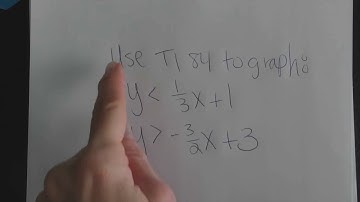 Use TI 84 to graph:
y < 1/3 x + 1
y > -3/2 x + 3